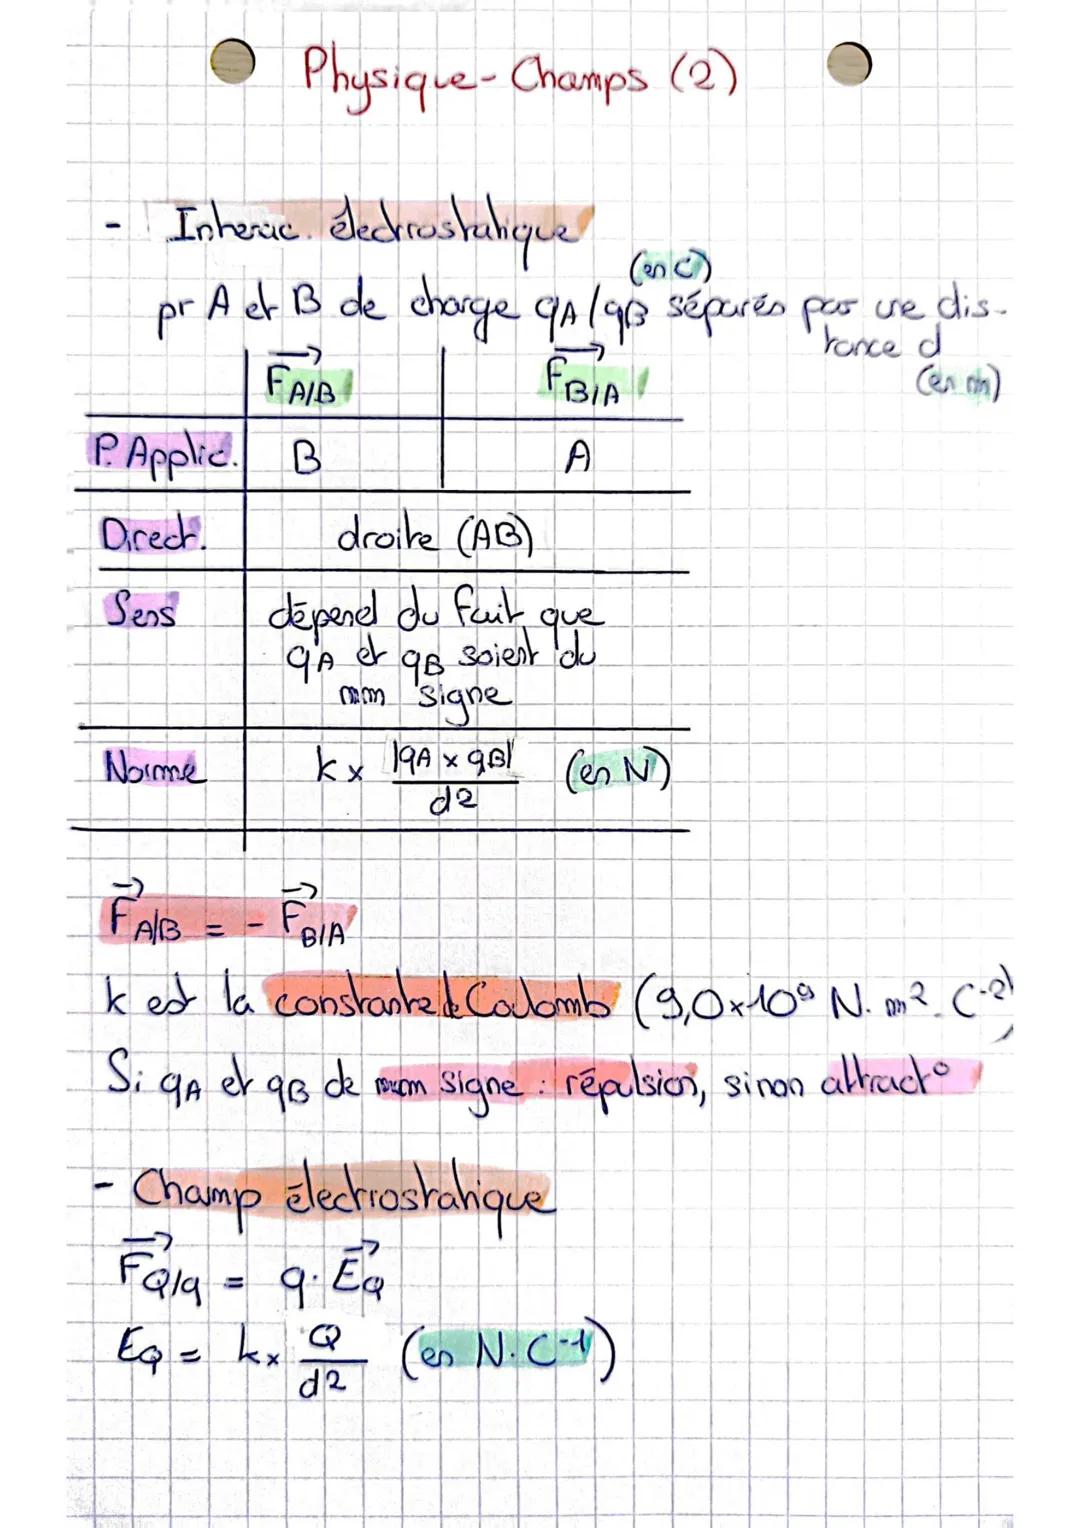 Physique - Champs (2)
- Interac. électrostatique
(en C)
pr A et B de charge qA/qB séparés par une dis-
tance d
(en m)
F→A/B F→B/A
P. Applic. B A
Direct. droite (AB)
Sens dépend du fait que
qA et qB soient du
mm signe
Norme k x |qA x qB| / d² (en N)
F→A/B = - F→B/A
k est la constante de Coulomb (9,0x10⁹ N.m².C⁻²)
Si qA et qB de mm signe : répulsion, sinon attract°
- Champ électrostatique
F→Q/q = q.E→Q
EQ = k x Q / d² (en N.C⁻¹)